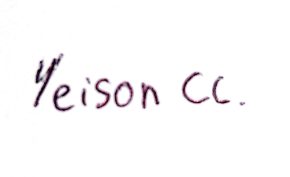 Yeison CC.